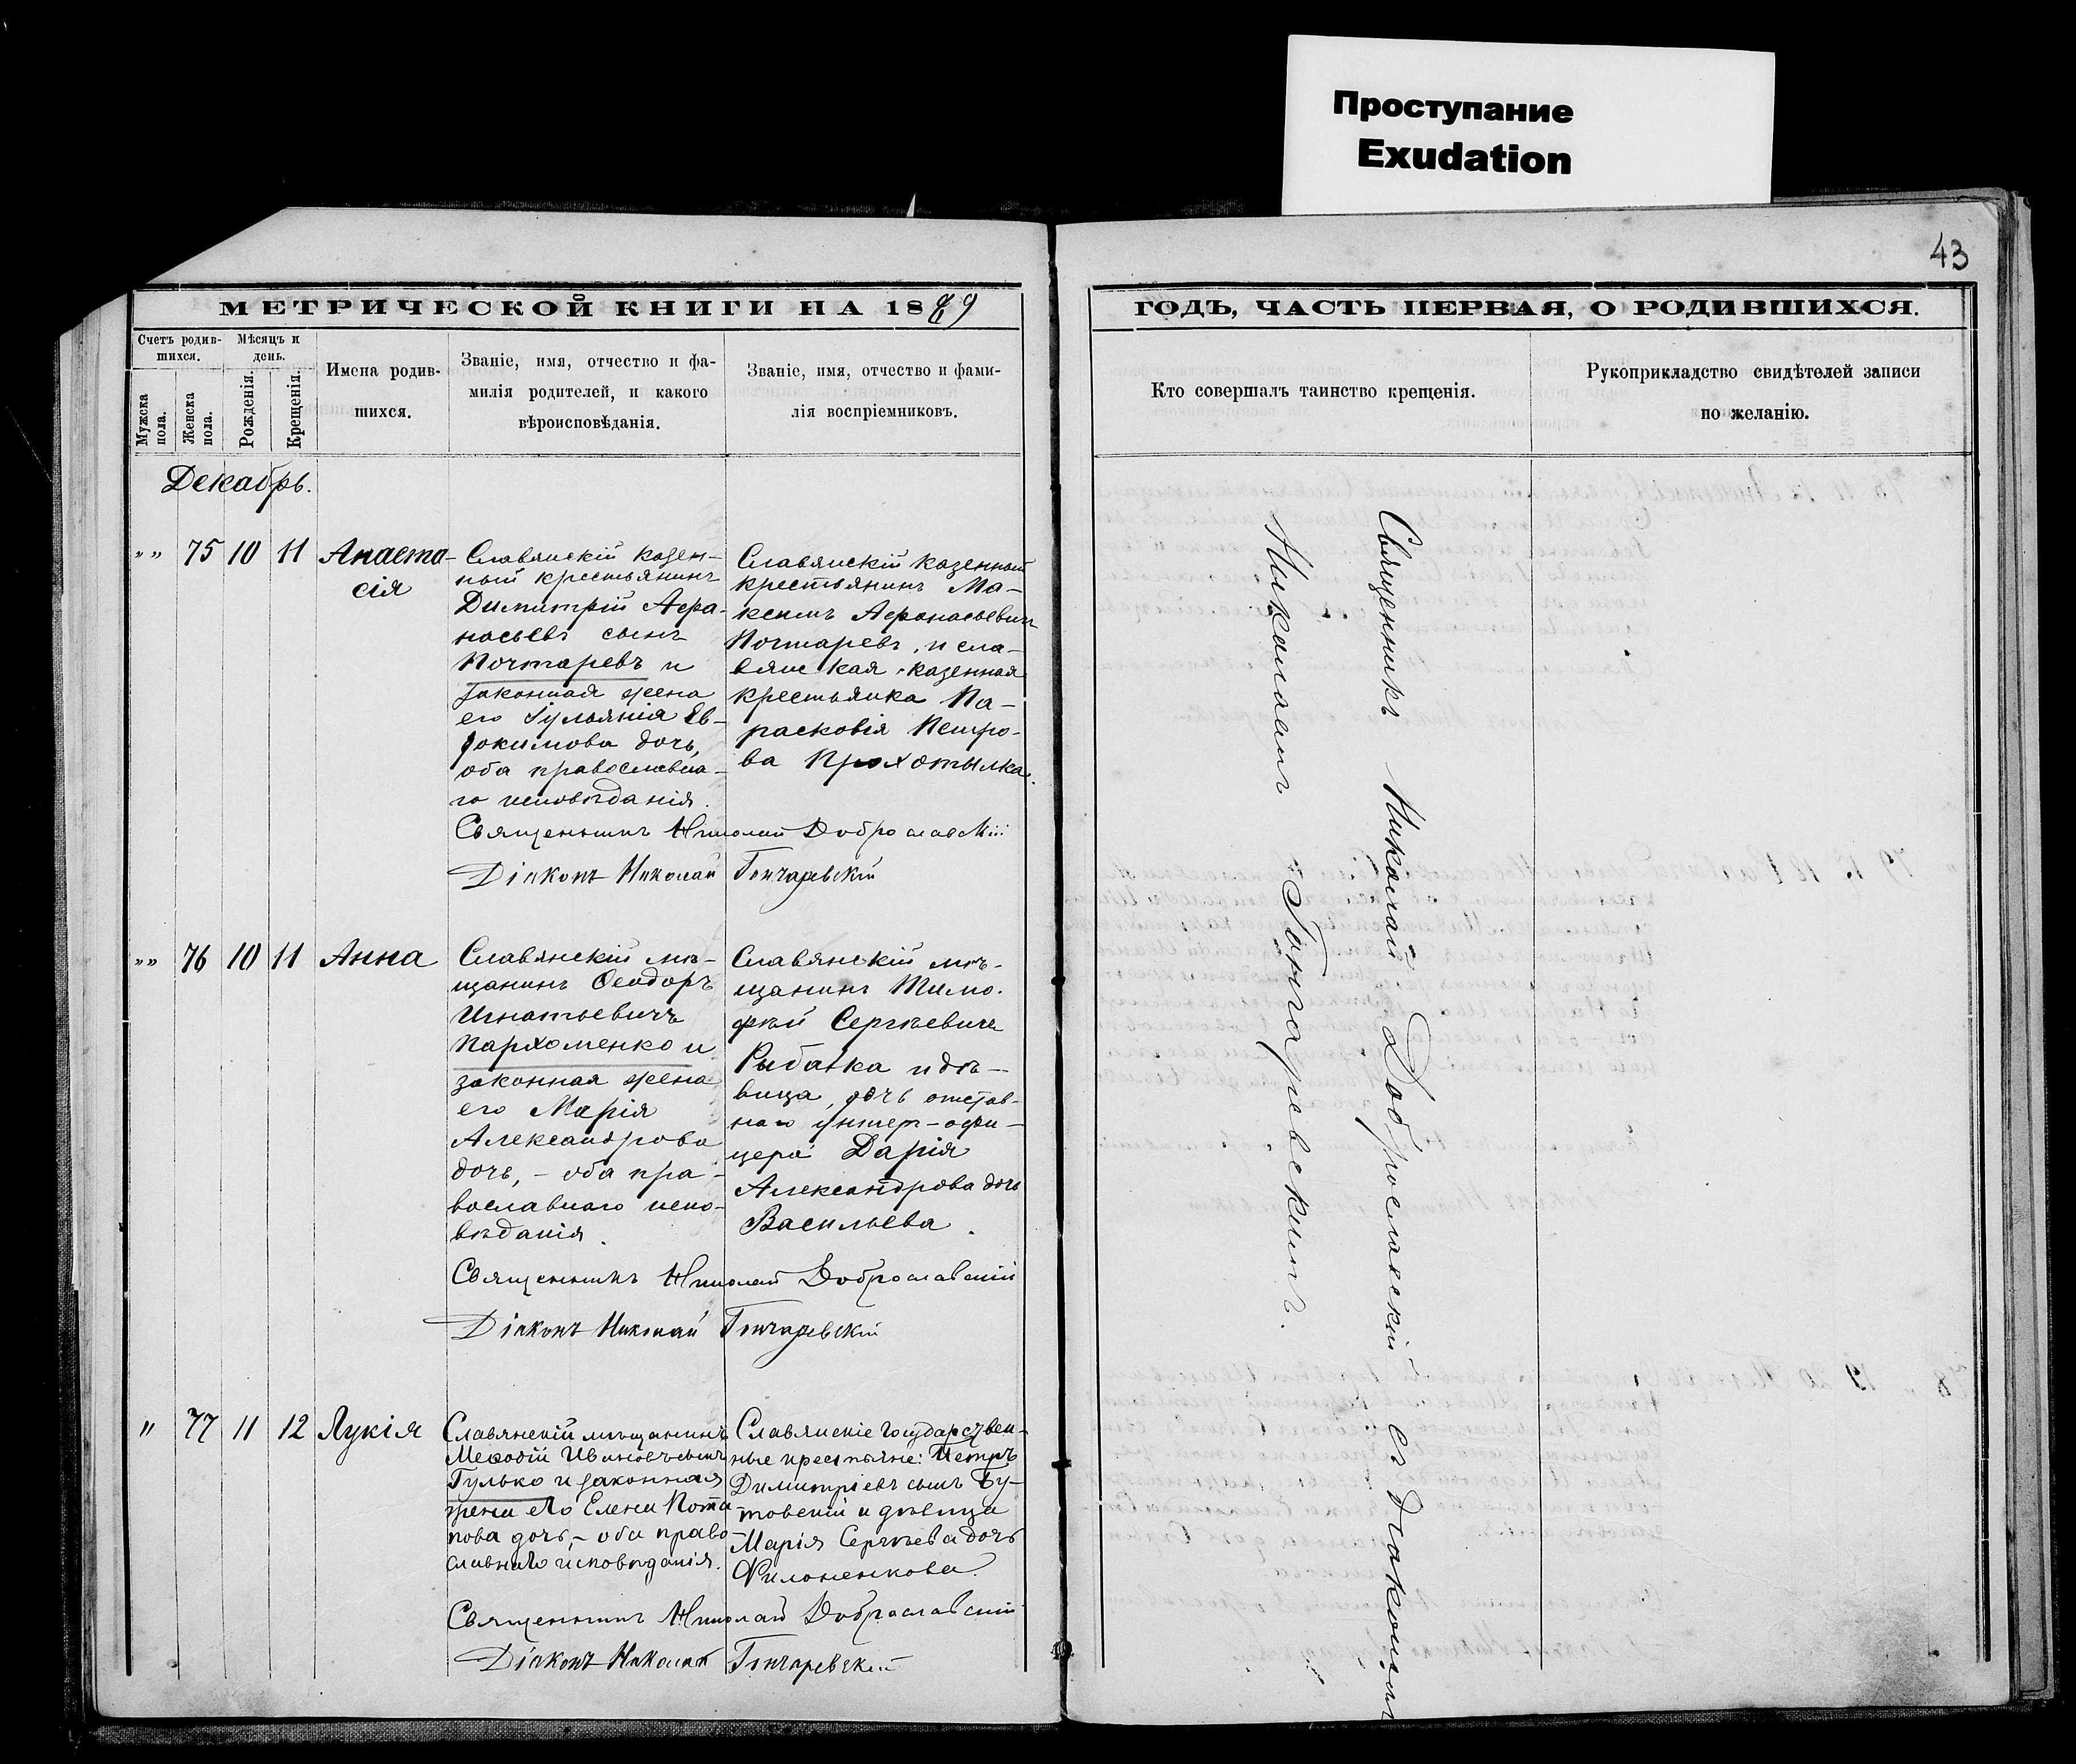 Проступание
Exudation
43
МЕТРИЧЕСКОЙ КНИГИ НА 1889
ГОДЪ, ЧАСТЬ ПЕРВАЯ, О РОДИВШИХСЯ.
Счетъ родив-
шихся.
Мужска
пола.
Женска
пола.
Мѣсяцъ и
день.
Рожденія.
Крещенія.
Имена родив-
шихся.
Званіе, имя, отчество и фа-
милія родителей, и какого
вѣроисповѣданія.
Званіе, имя, отчество и фами-
лія воспріемниковъ.
Кто совершалъ таинство крещенія.
Рукоприкладство свидѣтелей записи
по желанію.
Декабрь.
„ „ 75 10 11 Анаста-
сія
Славянскій казен-
ный крестьянинъ
Димитрій Афа-
насьевъ сынъ
Почтаревъ и
законная жена
его Іуліанія Ев-
докимова дочь,
оба православна-
го исповѣданія.
Славянскій казенный
крестьянинъ Ма-
ксимъ Афанасьевичъ
Почтаревъ, и сла-
вянская казенная
крестьянка Па-
расковія Петро-
ва Прохотылка.
Священникъ Николай Доброславскій
Діаконъ Николай Гончаревскій
„ „ 76 10 11 Анна
Славянскій мѣ-
щанинъ Ѳеодоръ
Игнатьевичъ
Пархоменко и
законная жена
его Марія
Александрова
дочь, - оба пра-
вославнаго испо-
вѣданія.
Славянскій мѣ-
щанинъ Тимо-
фей Сергѣевичъ
Рыбалка и дѣ-
вица, дочь отстав-
наго унтер-офи-
цера Дарія
Александрова дочь
Васильева.
Священникъ Николай Доброславскій
Діаконъ Николай Гончаревскій
„ 77 11 12 Лукія
Славянскій мѣщанинъ
Меѳодій Ивановъ сынъ
Гулько и законная
жена его Елена Пота-
пова дочь, - оба право-
славнаго исповѣданія.
Славянскіе государствен-
ные крестьяне: Петръ
Димитріевъ сынъ Бу-
товскій и дѣвица
Марія Сергѣева дочь
Филоненкова.
Священникъ Николай Доброславскій
Діаконъ Николай Гончаревскій
Священникъ Николай Доброславскій съ діакономъ
Николаемъ Гончаревскимъ.